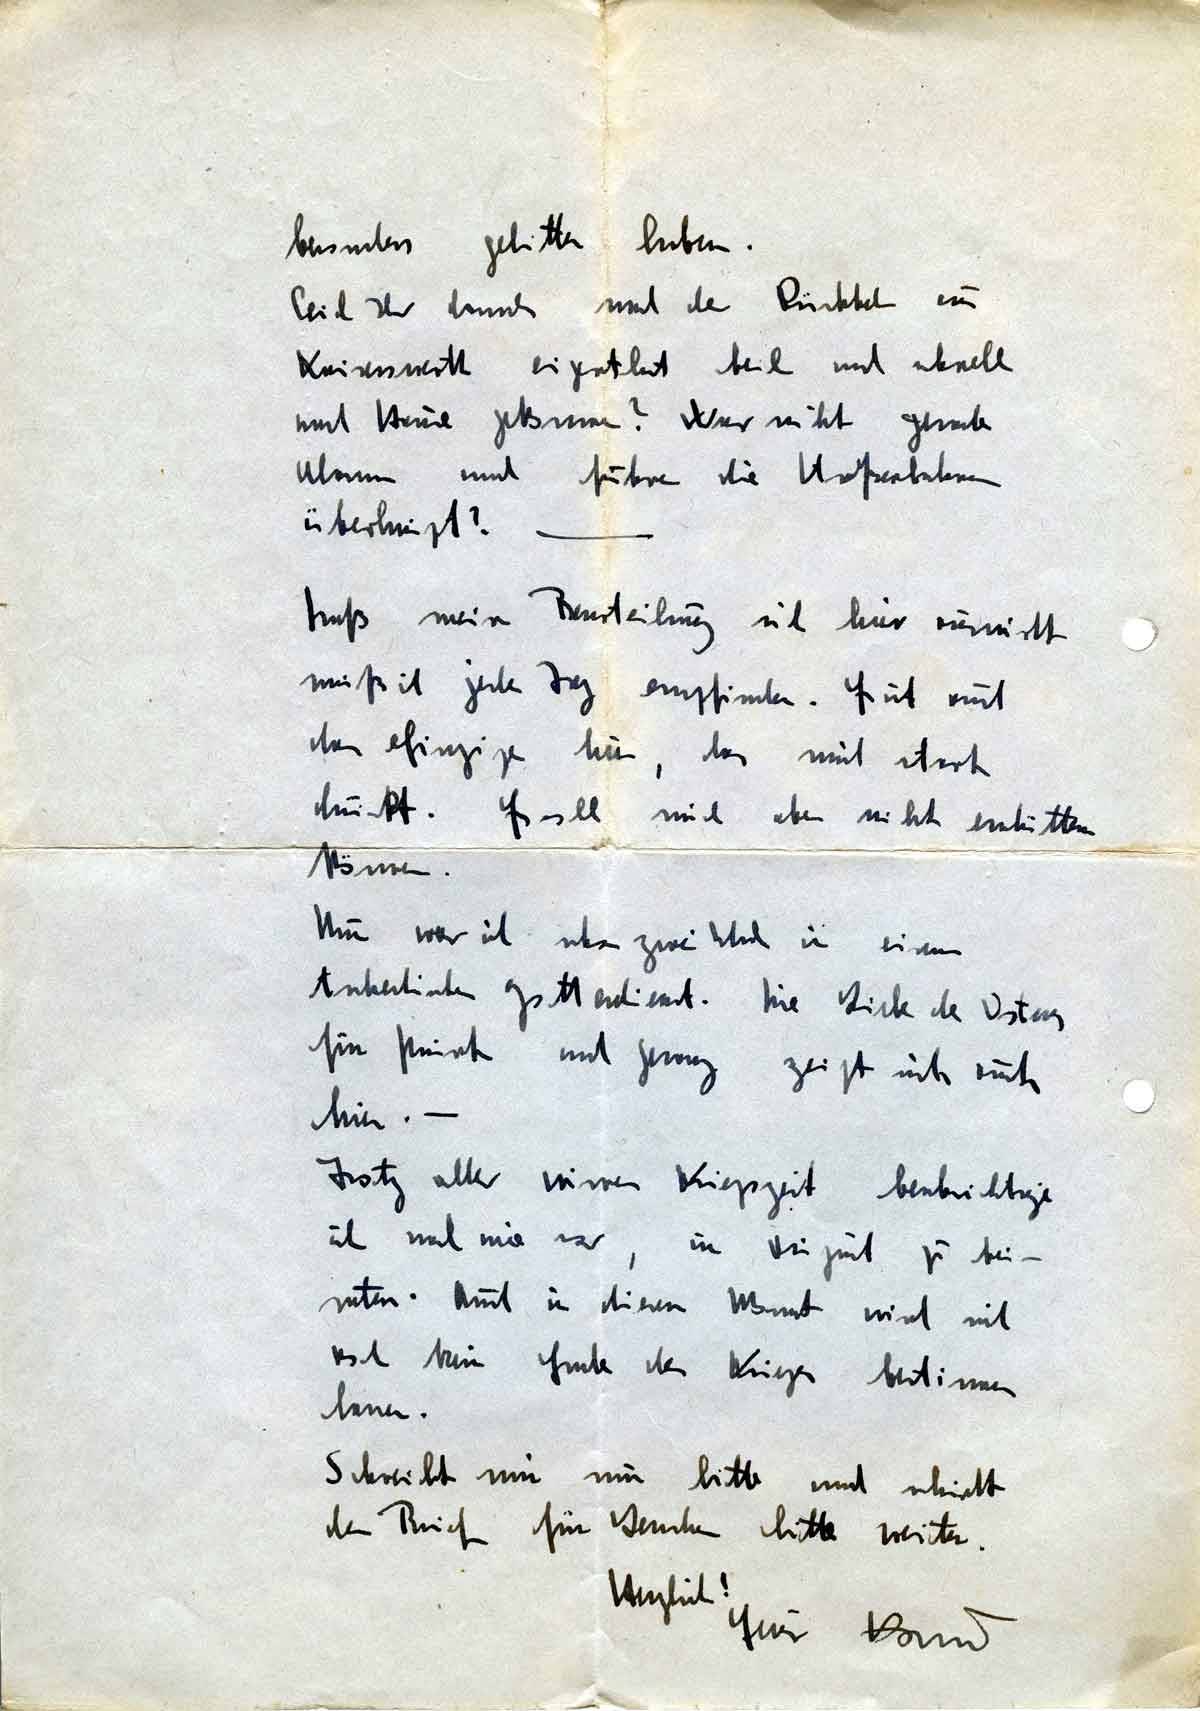 besonders gelitten haben.
Seid Ihr damals nach der Rückkehr aus
Kaiserswerth eigentlich heil und schnell
nach Hause gekommen? War nicht gerade
Alarm und fuhren die Straßenbahnen
überhaupt? —
Daß meine Beurteilung sich hier auswirkt
muß ich jeden Tag empfinden. Es ist auch
das Einzige hier, das mich stark
drückt. Es soll mich aber nicht erschüttern
können.
Nun war ich schon zweimal in einem
Gottesdienst. Die Liebe der
für Musik und Gesang zeigt sich auch
hier. —
Trotz aller wirren Kriegszeit beabsichtige
ich nach wie vor, im August zu hei-
raten. Auch in diesem Monat wird sich
noch kein Ende des Krieges bestimmen
lassen.
Schreibt mir nun bitte und schickt
den Brief für bitte weiter.
Herzlich!
Euer